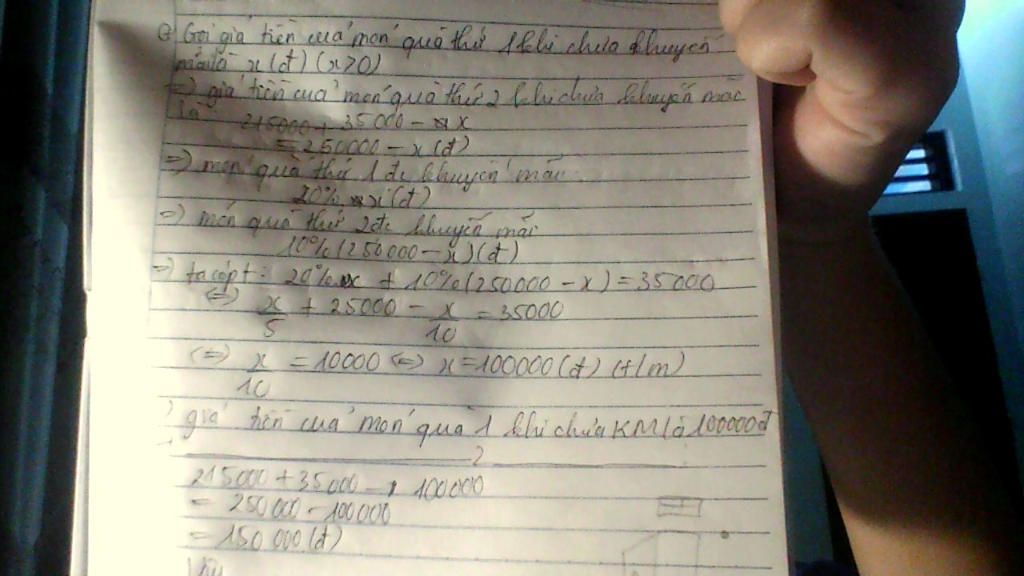 Gọi giá tiền của món quà thứ 1 khi chưa khuyến
mãi là x(đ) (x>0)
=) giá tiền của món quà thứ 2 khi chưa khuyến mãi
là 215000 + 35000 - x
= 250000 - x (đ)
=) món quà thứ 1 đc khuyến mãi
20% x (đ)
=) món quà thứ 2 đc khuyến mãi
10% (250000 - x) (đ)
=) ta có pt: 20% x + 10% (250000 - x) = 35000
(=) x/5 + 25000 - x/10 = 35000
(=) x/10 = 10000 (=) x = 100000 (đ) (t/m)
) giá tiền của món quà 1 khi chưa KM là 100000đ
2
215000 + 35000 - 100000
= 250000 - 100000
= 150 000 (đ)